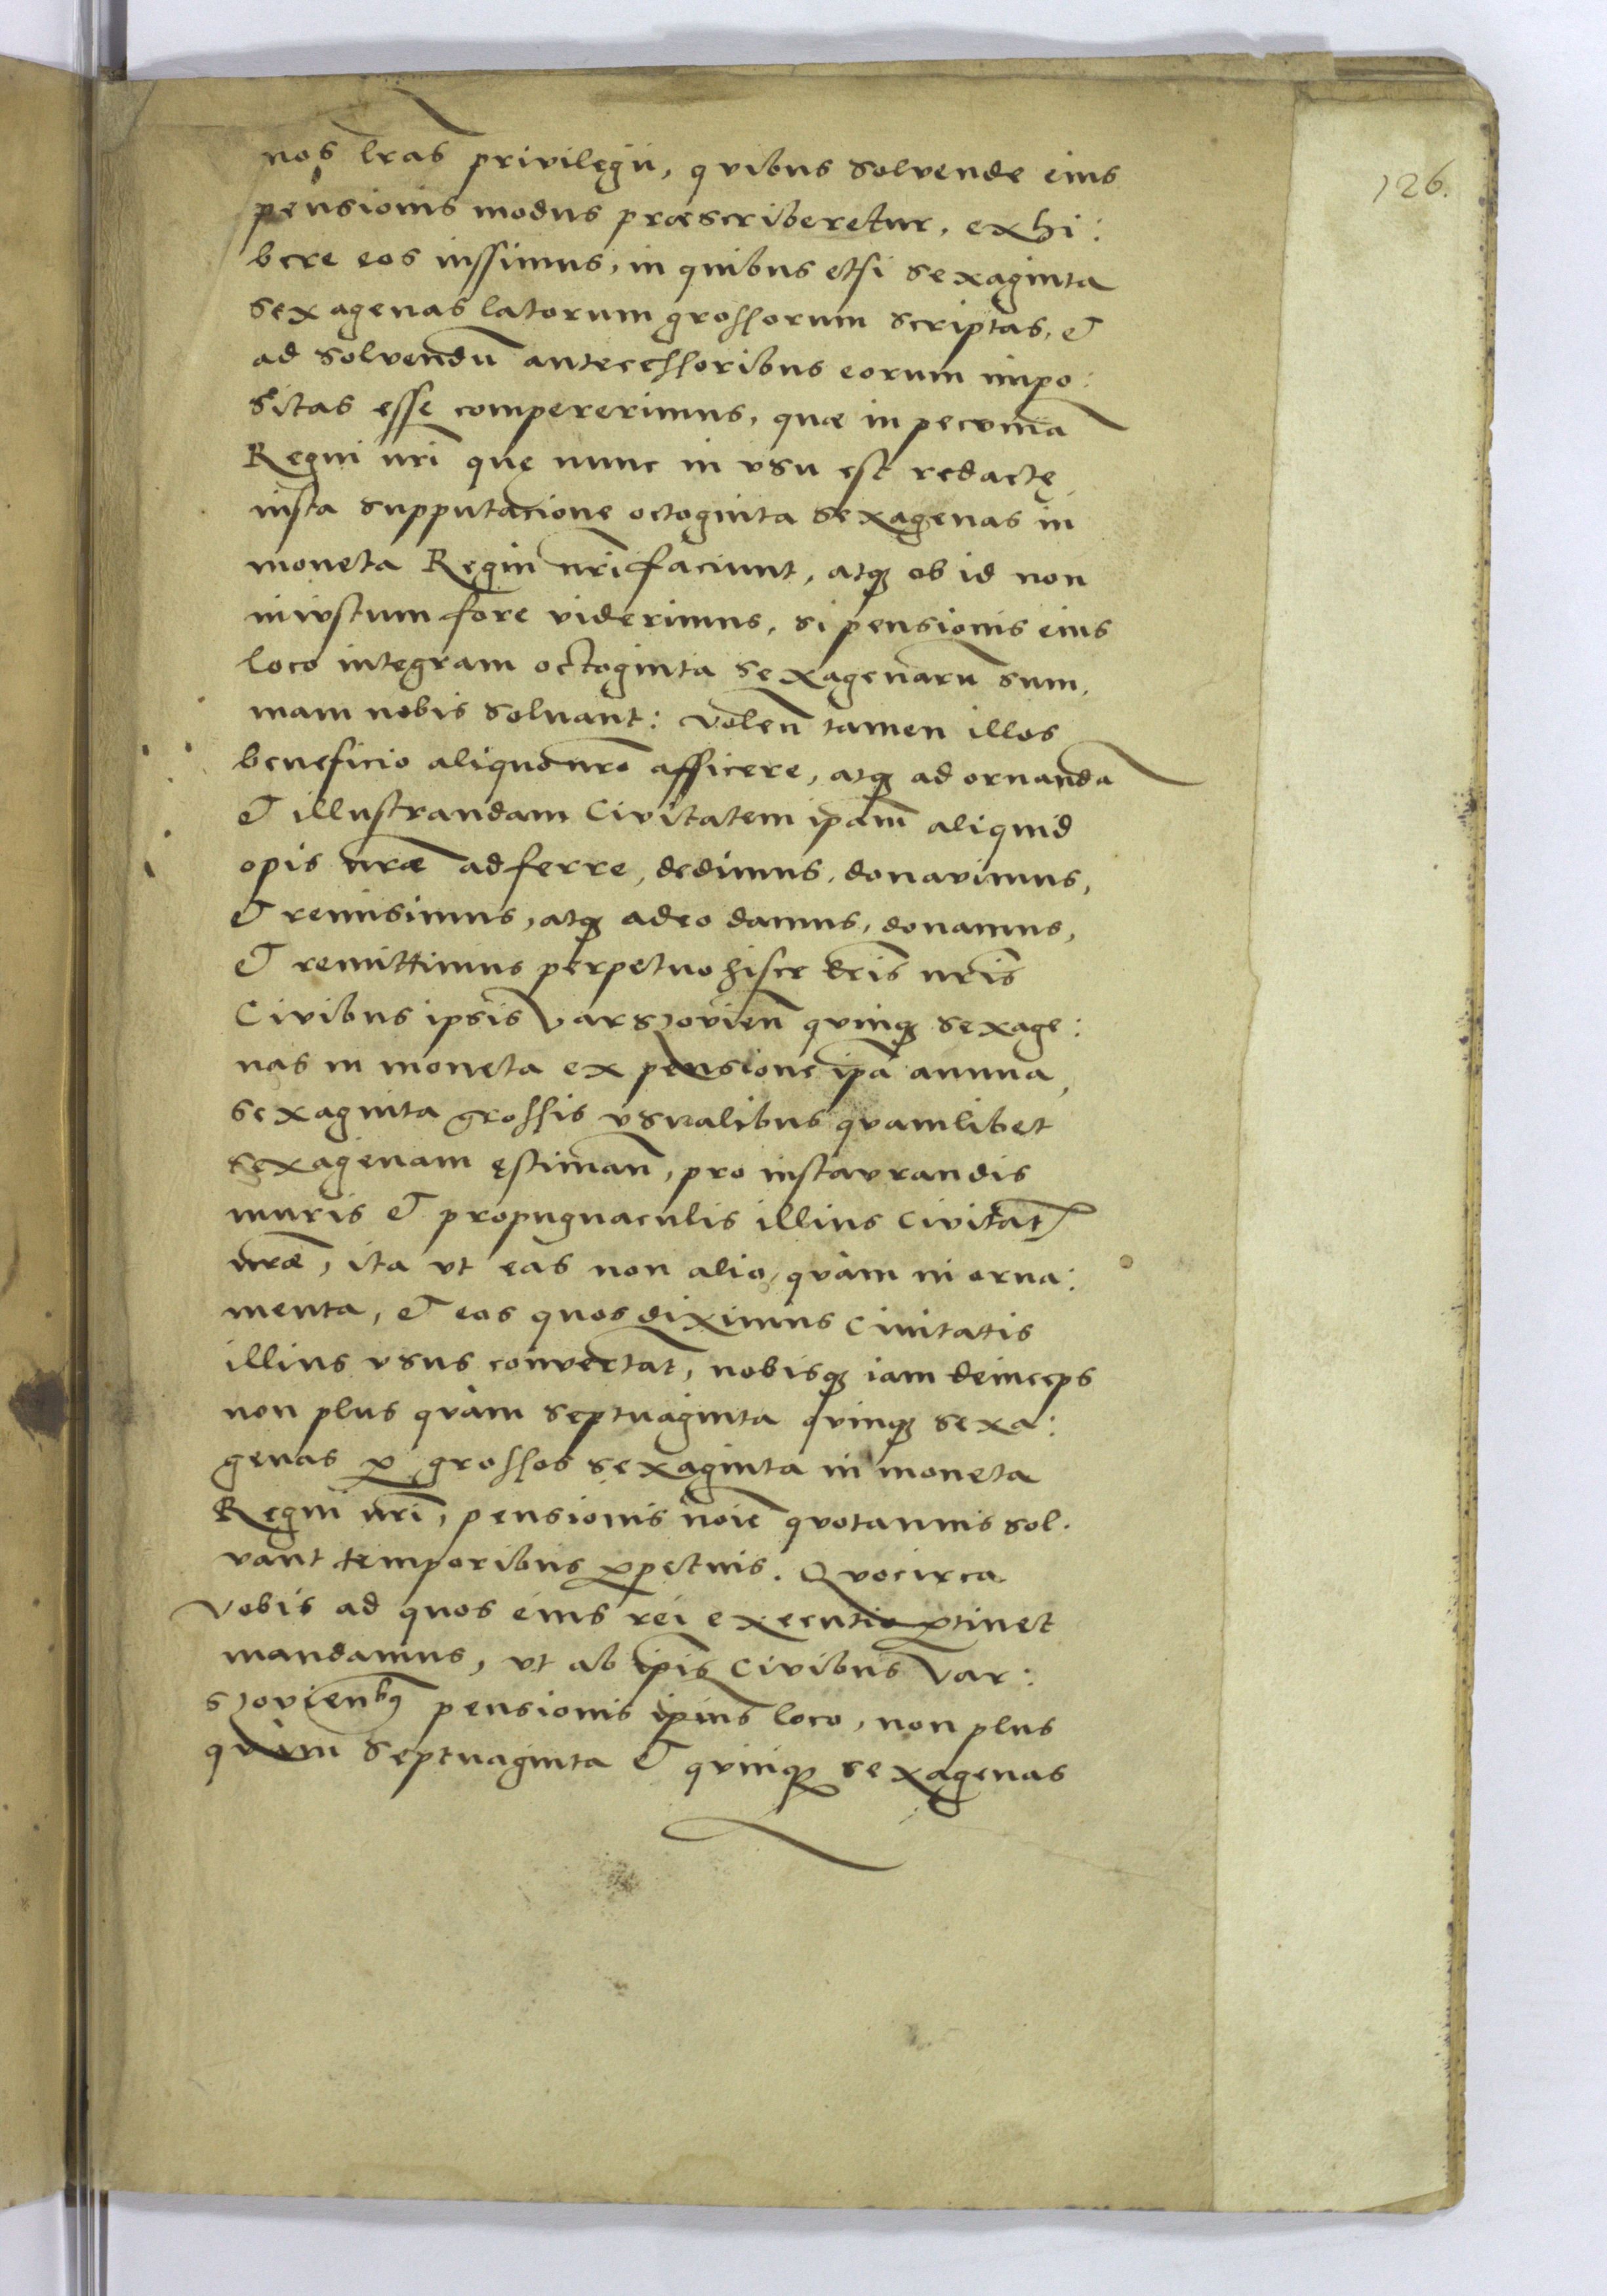 126.
nos lr̃as privilegii, quibus solvende eius
pensionis modus præscriberetur, exhi:
bere eos iussimus, in quibus etsi sexaginta
sexagenas latorum grossorum scriptas, et
ad solvendũ antecessoribus eorum impo:
sitas esse compererimus, quæ in pecuniã
Regni nr̃i quę nunc in usu est redactę
iusta supputacione octoginta sexagenas in
moneta Regni nr̃i faciunt, atq; ob id non
iniustum fore viderimus, si pensionis eius
loco integram octoginta sexagenarũ sum,
mam nobis solvant: Volen̄ tamen illos
beneficio aliquo nr̃o afficere, atq; ad ornandã
et illustrandam Civitatem ipãm aliquid
opis nr̃æ adferre, dedimus, donavimus,
et remisimus, atq; adeo damus, donamus,
et remittimus perpetuo hisce lr̃is nr̃is
Civibus ipsis Varszovien̄ quinq; sexage:
nas in moneta ex pensione ip̃a annua,
sexaginta grossis usualibus quamlibet
sexagenam ęstiman̄, pro instaurandis
muris et propugnaculis illius Civitat̃
nr̃æ, ita ut eas non alio, quàm in orna:
menta, et eos quos diximus Civitatis
illius usus convertat̃, nobisq; iam deinceps
non plus quàm septuaginta quinq; sexa:
genas ꝑ grossos sexaginta in moneta
Regni nr̃i, pensionis noĩe quotannis sol.
vant temporibus ꝑpetuis. Quocirca
vobis ad quos eius rei executio ꝑtinet
mandamus, ut ab ip̃is Civibus Var:
szovienb; pensionis ip̃ius loco, non plus
quàm septuaginta et quinq; sexagenas